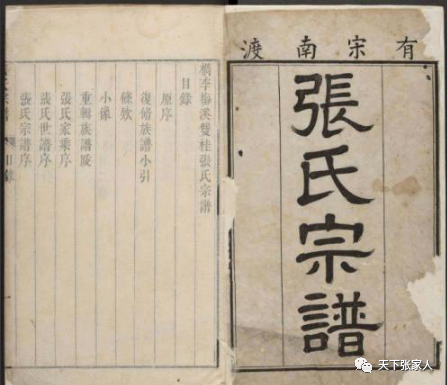 有宋南渡
張氏宗譜
檇李梅溪雙桂張氏宗譜
目錄
原序
復修族譜小引
條欵
小像
重輯族譜跋
張氏家乘序
張氏世譜序
張氏宗譜序
目錄
天下张家人